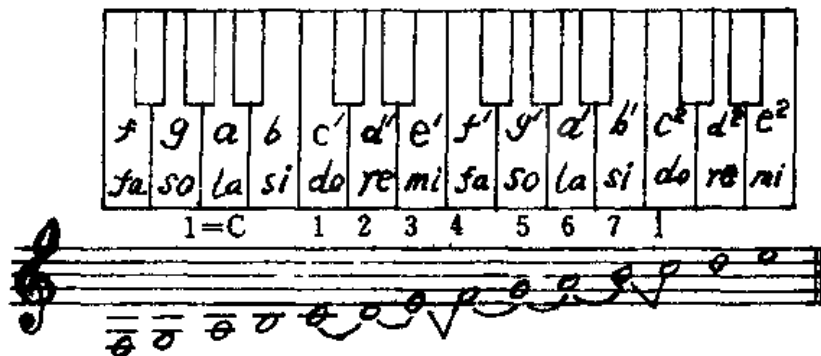 f g a b c' d' e' f' g' a' b' c² d² e²
fa so la si do re mi fa so la si do re mi
1=C 1 2 3 4 5 6 7 1